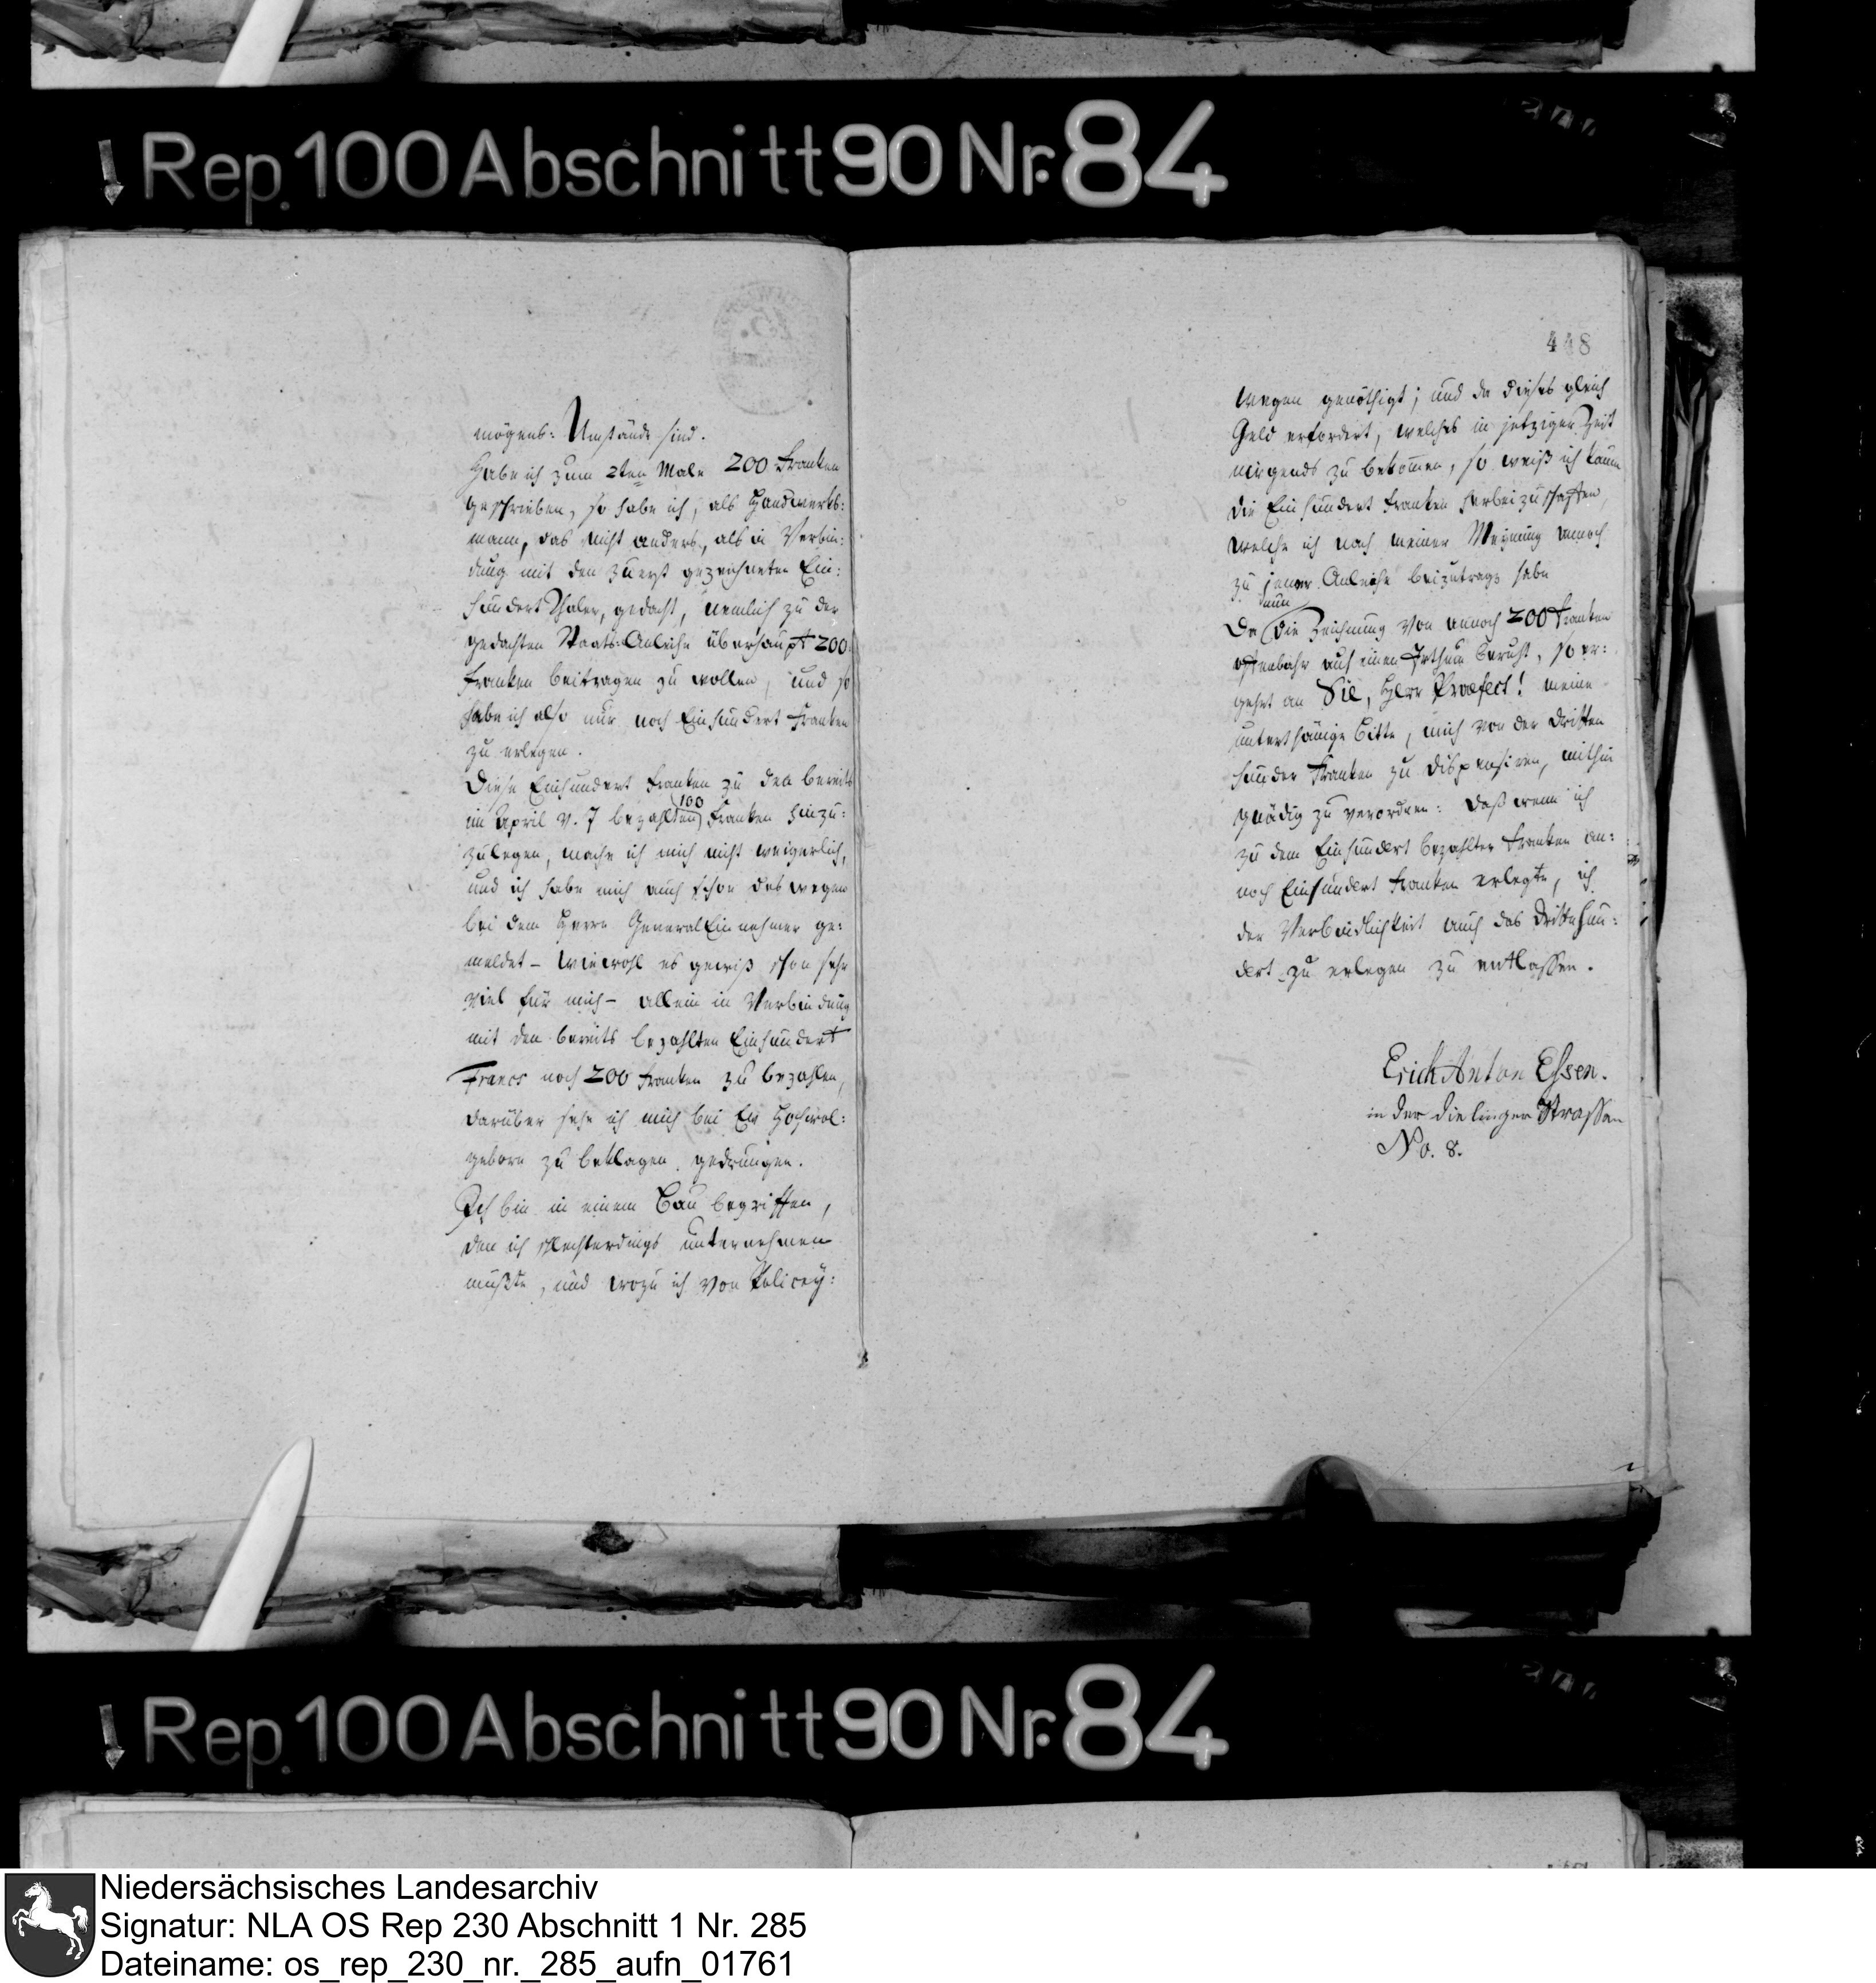 Rep. 100 Abschnitt 90 Nr. 84
mögens: Umstände sind.
Habe ich zum 2ten Male 200 Franken
geschrieben, so habe ich, als Handwerks:
mann, das nicht anders, als in Verbin:
dung mit den zuerst gezeichneten Ein:
hundert Thaler, gedacht, nemlich zu der
gedachten Staats-Anleihe überhaupt 200
Franken beitragen zu wollen, und so
habe ich also nur noch Einhundert Franken
zu erlegen.
Diese Einhundert Franken zu den bereits
im April v. J bezahlten 100 Franken hinzu:
zulegen, mache ich mich nicht weigerlich,
und ich habe mich auch schon deswegen
bei dem Herrn General Einnehmer ge:
meldet – wiewohl es gewiß schon sehr
viel für mich – allein in Verbindung
mit den bereits bezahlten Einhundert
Francs noch 200 Franken zu bezahlen,
darüber sehe ich mich bei Ew Hochwol:
geborn zu beklagen gedrungen.
Ich bin in einem Bau begriffen,
den ich schlechterdings unternehmen
mußte, und wozu ich von Policey:
448
wegen genöthigt; und da dieses gleich
Geld erfordert, welches in jetziger Zeit
nirgends zu bekommen, so weiß ich kaum
die Einhundert Franken herbeizuschaffen,
welche ich nach meiner Meynung annoch
zu jener Anleihe beizutragen habe
Da nun die Zeichnung von annoch 200 Franken
offenbahr auf einen Irthum beruht, so er:
gehet an Sie, Herr Præfect! meine
unterthänige Bitte, mich von der dritten
hundert Franken zu dispensiren, mithin
gnädig zu verordnen: daß wenn ich
zu dem Einhundert bezahlter Franken an:
noch Einhundert Franken erlegte, ich
der Verbindlichkeit auch das dritte hun:
dert zu erlegen zu entlassen.
Erich Anton Essen.
in der dielinger Strassen
No. 8.
Rep. 100 Abschnitt 90 Nr. 84
Niedersächsisches Landesarchiv
Signatur: NLA OS Rep 230 Abschnitt 1 Nr. 285
Dateiname: os_rep_230_nr._285_aufn_01761